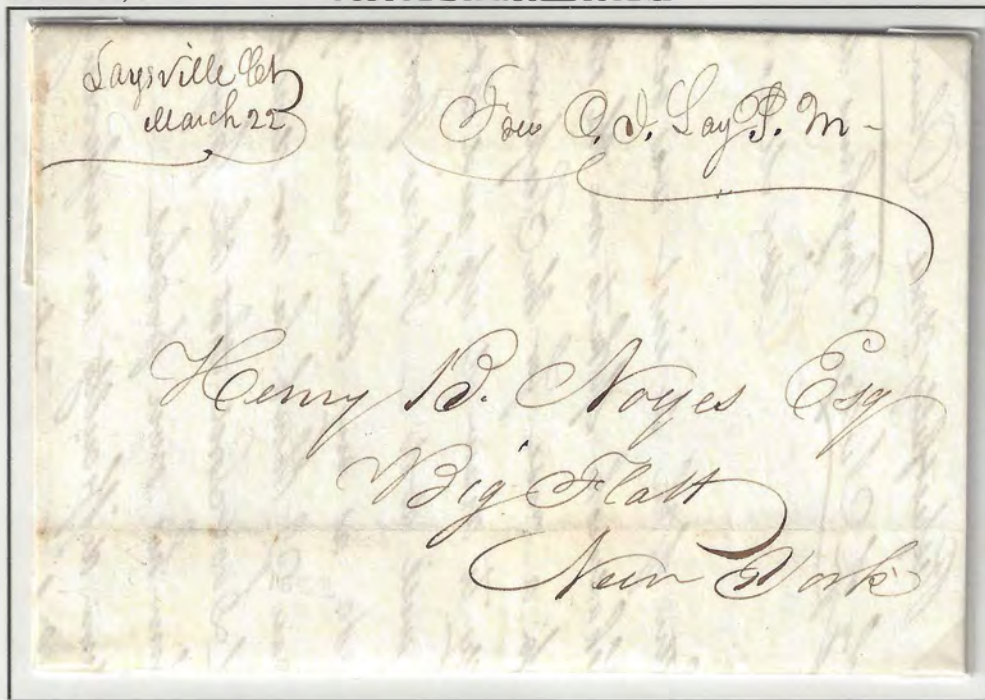 Laysville Ct
March 22
Free O. I. Lay P. M -
Henry B. Noyes Esq
Big Flatt
New York